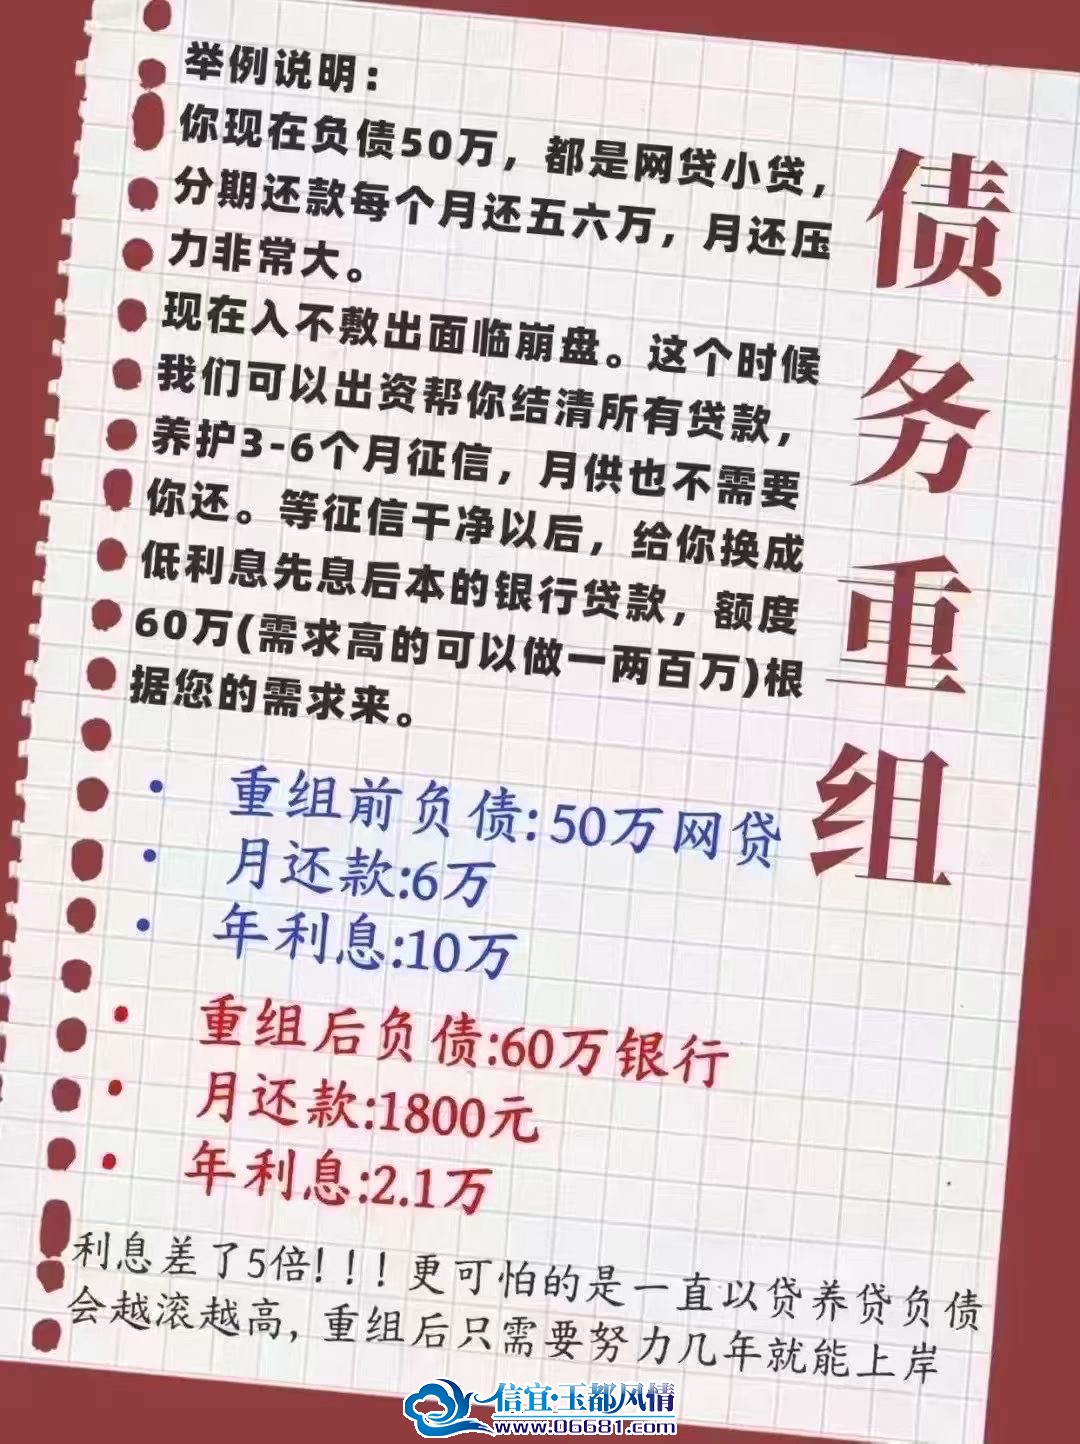 债务重组
举例说明：
你现在负债50万，都是网贷小贷，
分期还款每个月还五六万，月还压
力非常大。
现在入不敷出面临崩盘。这个时候
我们可以出资帮你结清所有贷款，
养护3-6个月征信，月供也不需要
你还。等征信干净以后，给你换成
低利息先息后本的银行贷款，额度
60万(需求高的可以做一两百万)根
据您的需求来。
• 重组前负债:50万网贷
• 月还款:6万
• 年利息:10万
• 重组后负债:60万银行
• 月还款:1800元
• 年利息:2.1万
利息差了5倍!!!更可怕的是一直以贷养贷负债
会越滚越高,重组后只需要努力几年就能上岸
信宜·玉都风情
www.06681.com